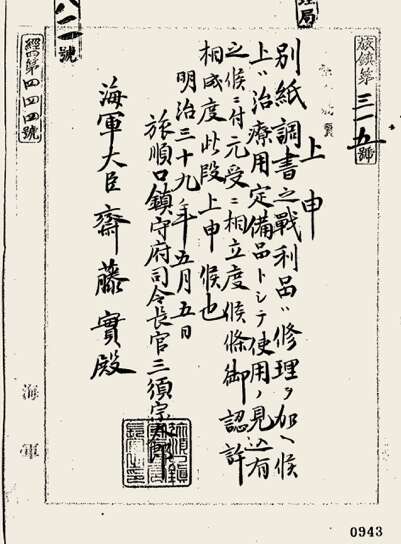 旅鎮第三一五號
上申
別紙調書之戰利品ハ修理ヲ加ヘ候
上ハ治療用定備品トシテ使用ノ見込有
之候ニ付元受ニ相立度候條御認許
相成度此段上申候也
明治三十九年五月五日
旅順口鎮守府司令長官三須宗太郎
海軍大臣齋藤實殿
經第四四四號
八二號
海軍
0943